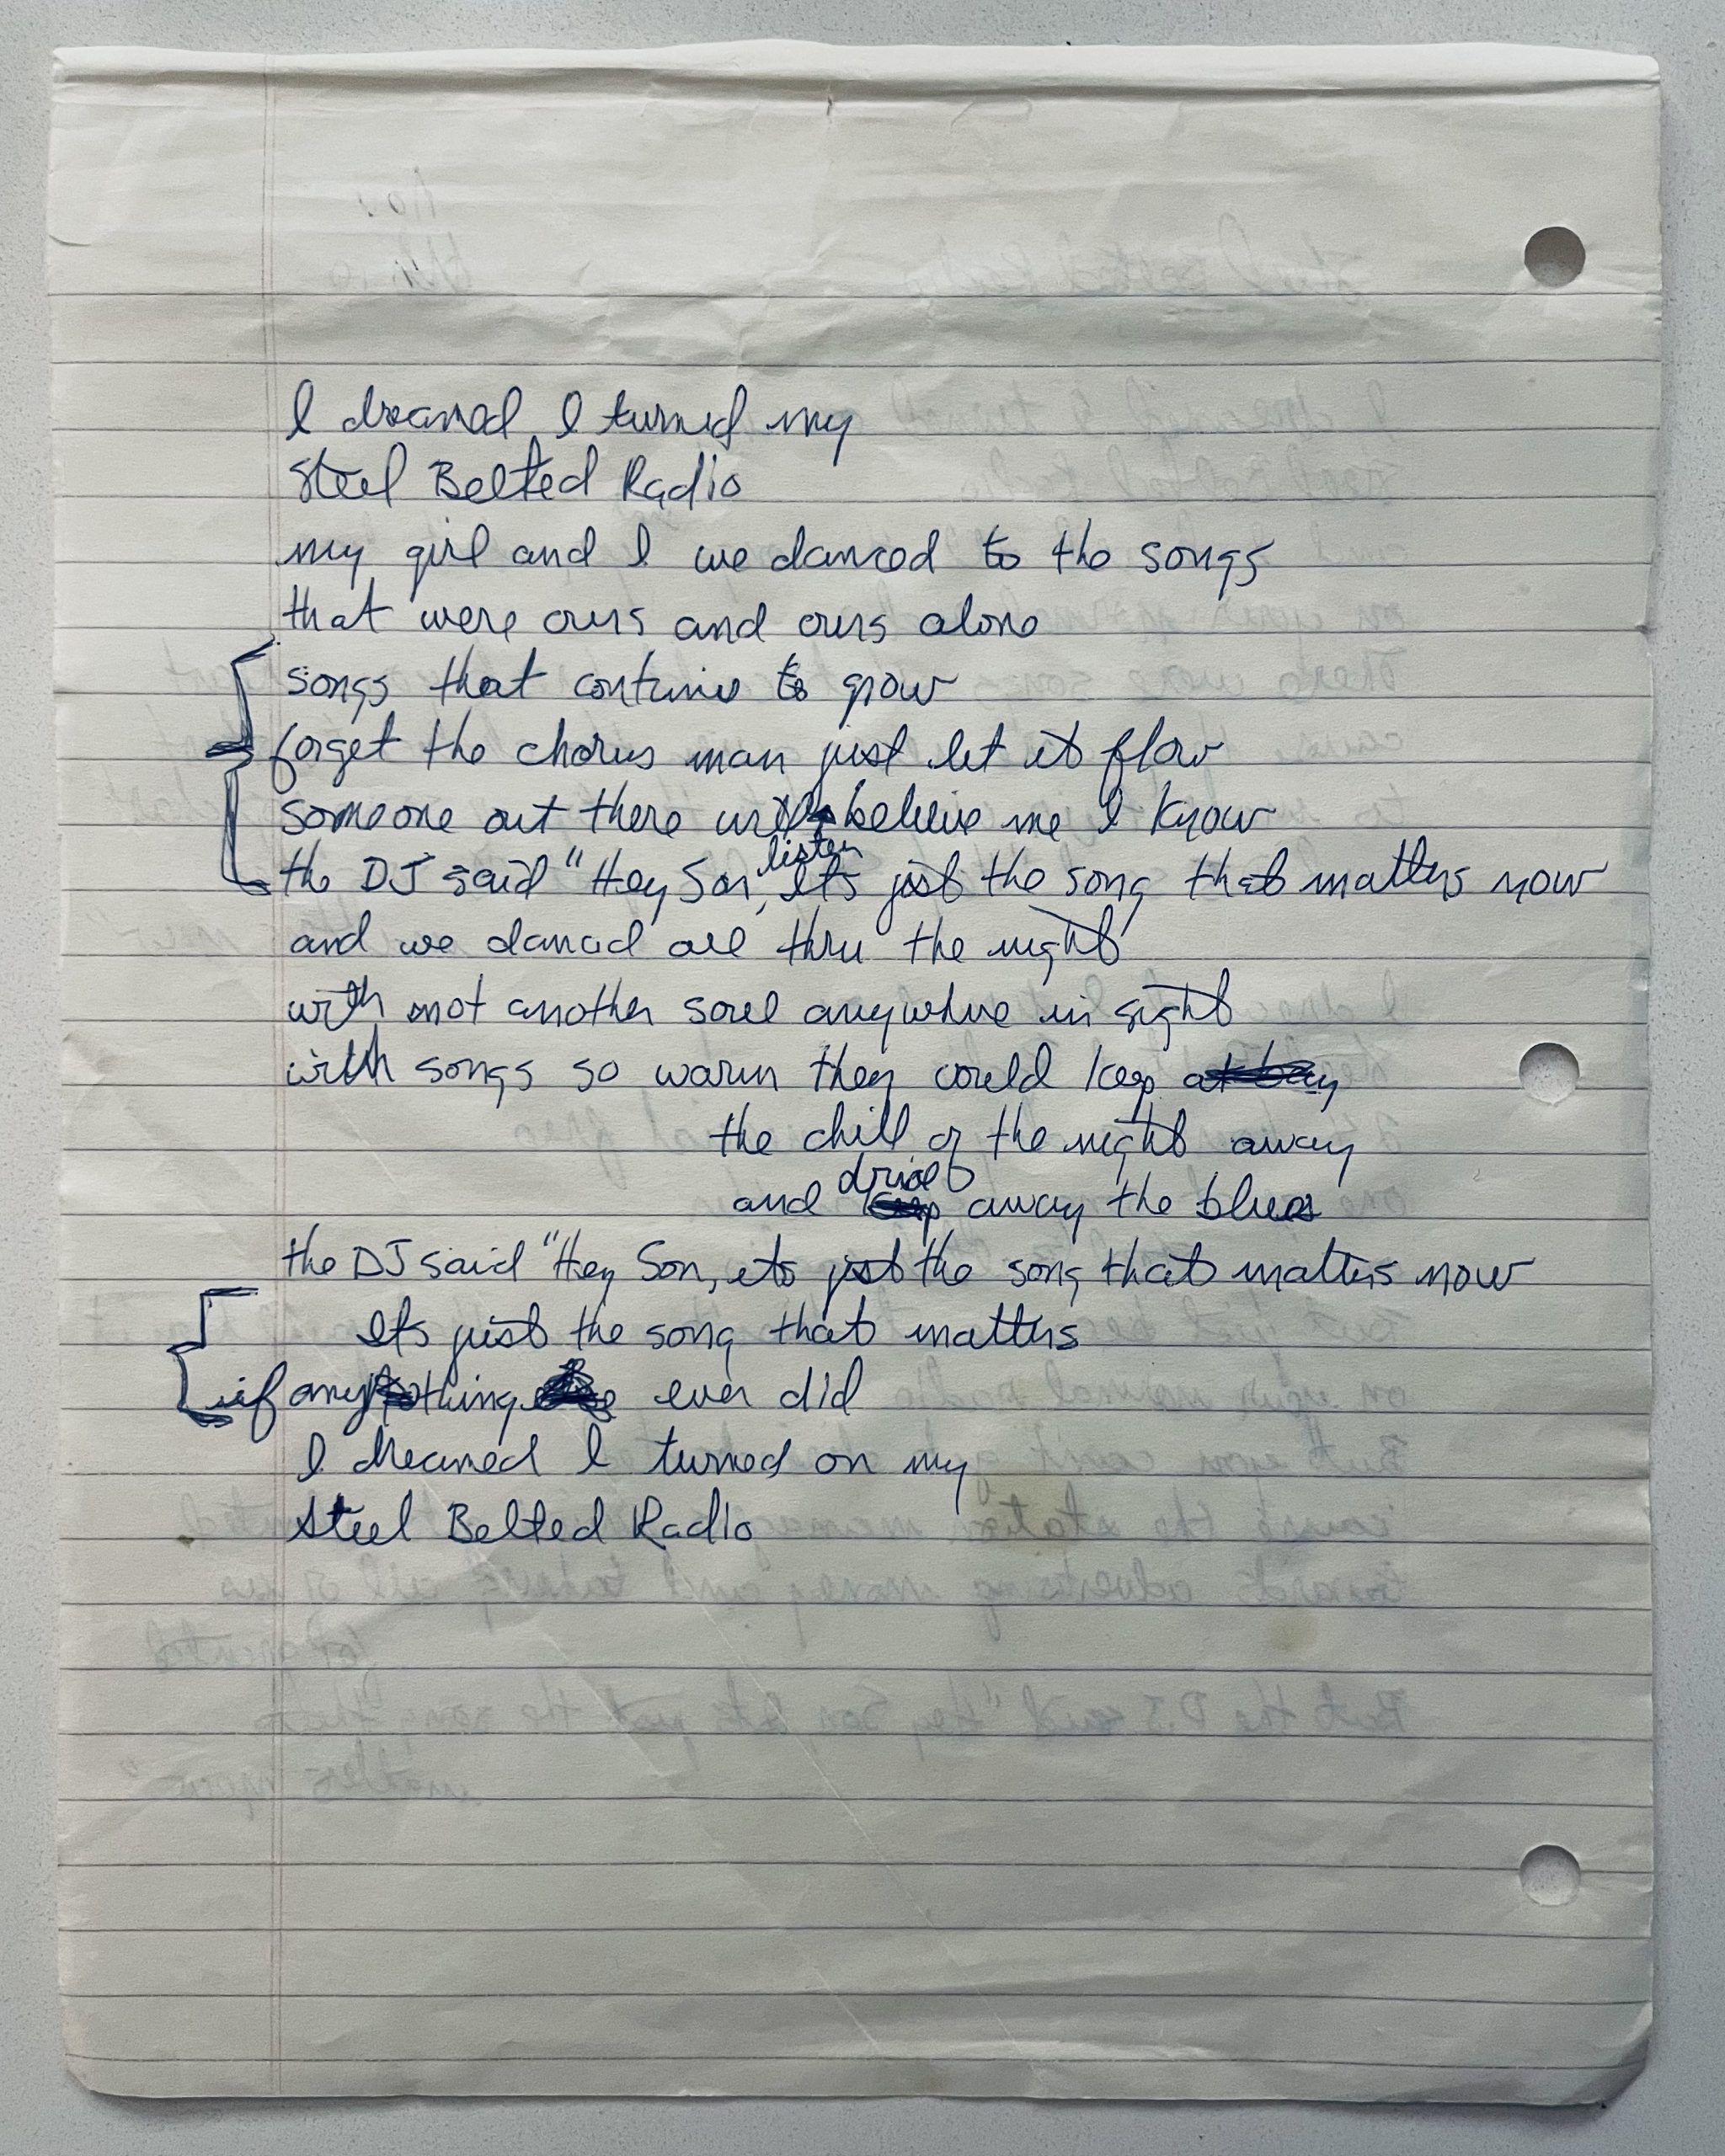 I dreamed I turned my
Steel Belted Radio
my girl and I we danced to the songs
that were ours and ours alone
songs that continue to grow
forget the chorus man just let it flow
someone out there will listen believe me I know
the DJ said "Hey Son, It's just the song that matters now
and we danced all thru the night
with not another soul anywhere in sight
with songs so warm they could keep at bay
the chill of the night away
and drive away the blues
the DJ said "Hey Son, its just the song that matters now
It's just the song that matters
if anything ever did
I dreamed I turned on my
Steel Belted Radio